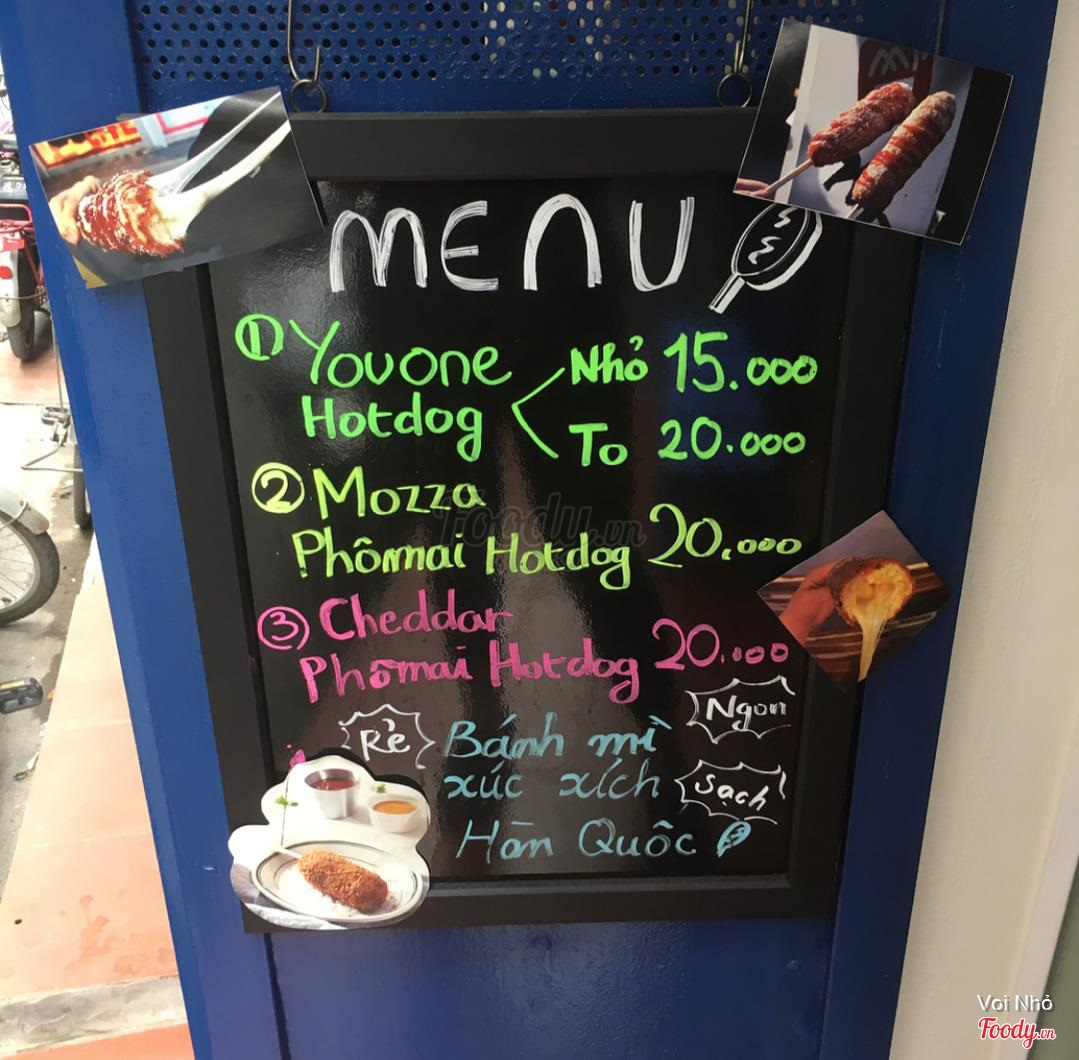 MENU
① Youone Hotdog
Nhỏ 15.000
To 20.000
② Mozza
Phômai Hotdog 20.000
③ Cheddar
Phômai Hotdog 20.000
Rẻ
Ngon
Sạch
Bánh mì
xúc xích
Hàn Quốc
Foody.vn
Voi Nhỏ
Foody.vn